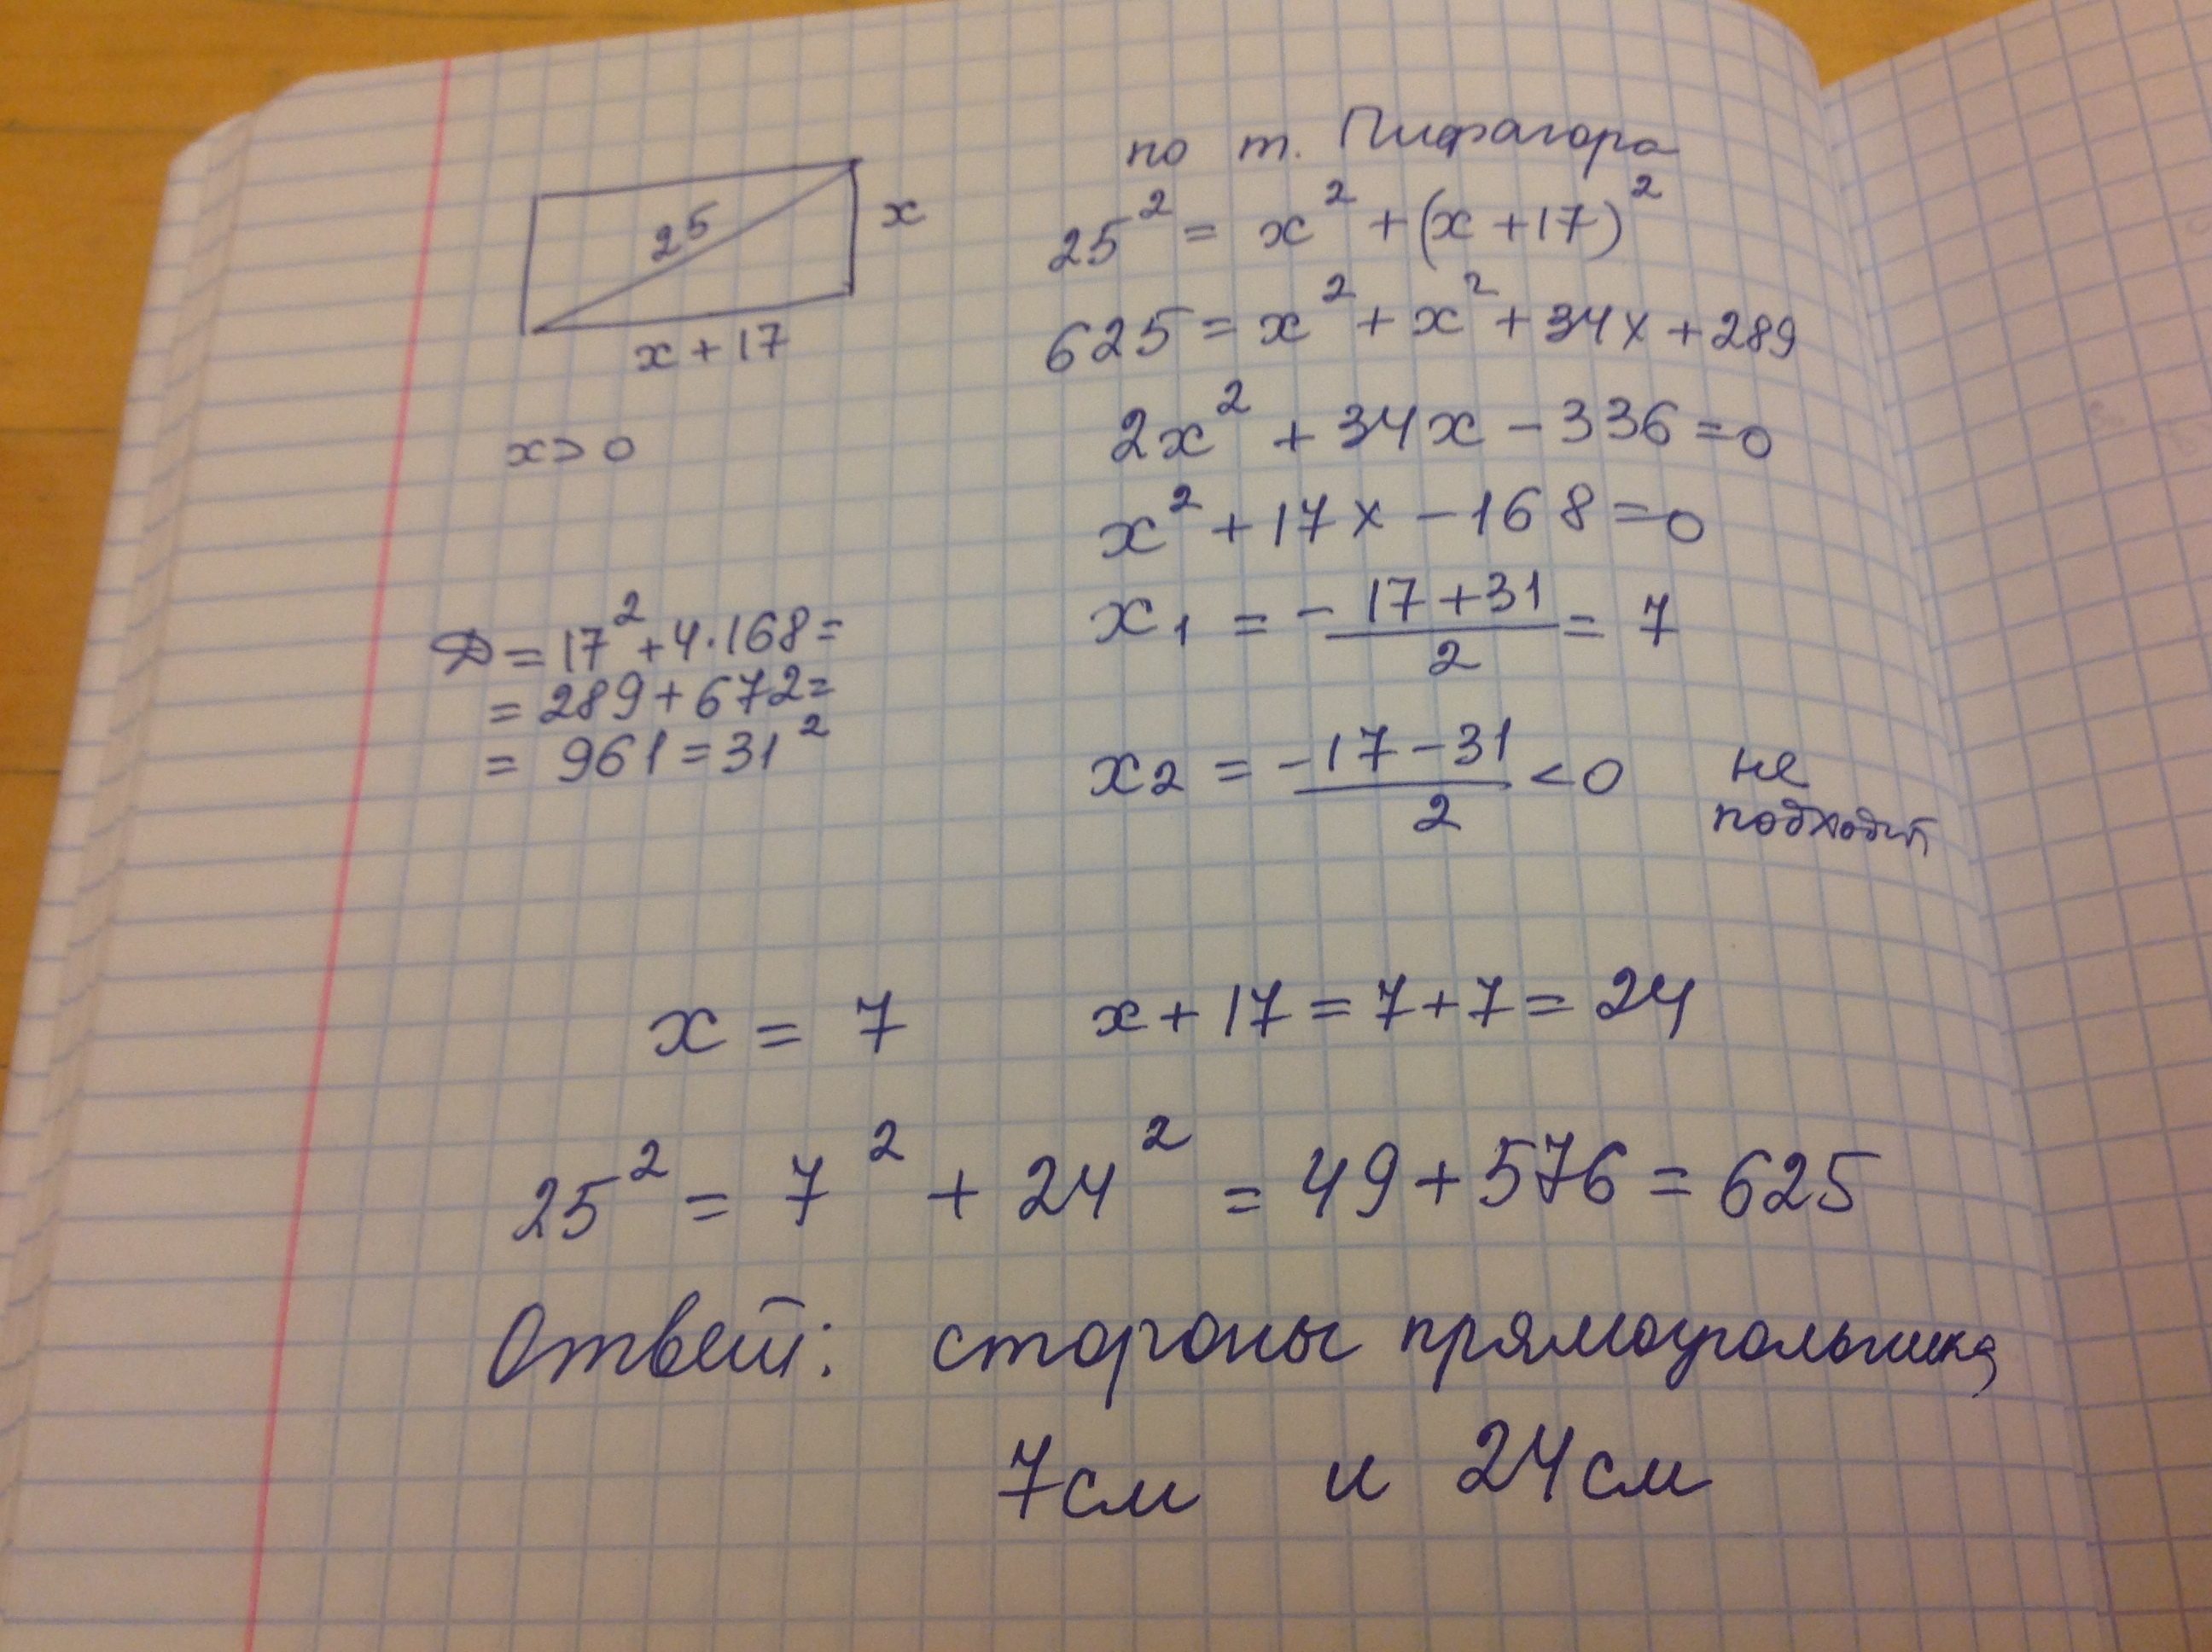 25
x
x + 17
x > 0
по т. Пифагора
25² = x² + (x + 17)²
625 = x² + x² + 34x + 289
2x² + 34x − 336 = 0
x² + 17x − 168 = 0
D = 17² + 4·168 =
= 289 + 672 =
= 961 = 31²
x₁ = −17 + 31 / 2 = 7
x₂ = −17 − 31 / 2 < 0 не подходит
x = 7 x + 17 = 7 + 7 = 24
25² = 7² + 24² = 49 + 576 = 625
Ответ: стороны прямоугольника
7 см и 24 см